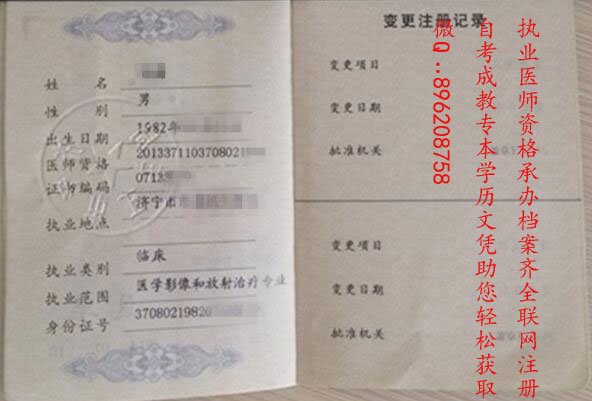 姓 名
性 别 男
出生日期 1982年
医师资格 20133711037080219
证书编码 0713
济宁市市
执业地点
执业类别 临床
执业范围 医学影像和放射治疗专业
身份证号 3708021982
变更注册记录
变更项目
变更日期
批准机关
变更项目
变更日期
批准机关
执业医师资格承办档案齐全联网注册
自考成教专本学历文凭助您轻松获取
微Q:896208758